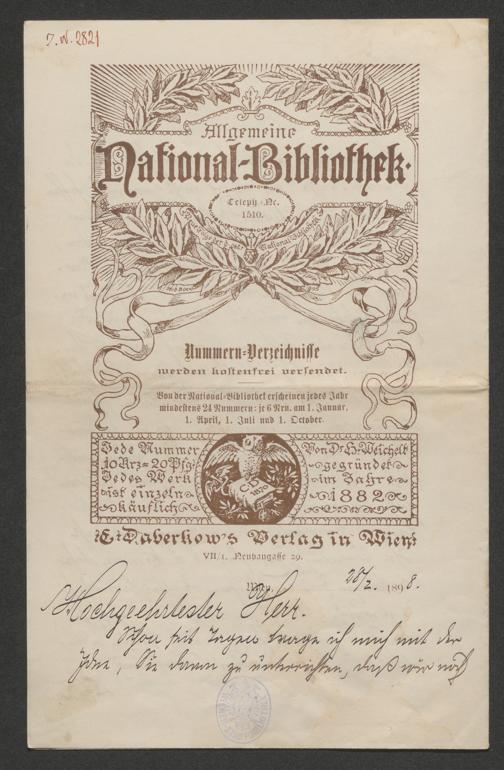 J. N. 2821
Allgemeine
National-Bibliothek.
Teleph.-Nr.
1510.
Nummern-Verzeichnisse
werden kostenfrei versendet.
Von der National-Bibliothek erscheinen jedes Jahr
mindestens 24 Nummern: je 6 Nrn. am 1. Januar,
1. April, 1. Juli und 1. October.
Jede Nummer
10 Krz = 20 Pfg.
Jedes Werk
ist einzeln
käuflich
Von Dr. H. Weichelt
gegründet
im Jahre
1882
C. Daberkow's Verlag in Wien
VII/1. Neubaugasse 29.
Wien, 28/2. 1898.
Hochgeehrtester Herr.
Schon seit Tagen trage ich mich mit der
Idee, Sie davon zu unterrichten, daß wir noch